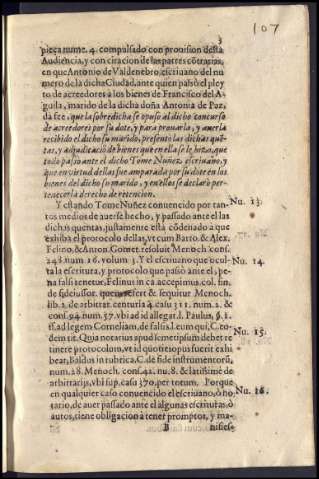 107
3
pieça nume. 4. compulsado con prouision desta
Audiencia, y con citacion de las partes cõtrarias,
en que Antonio de Valdenebro, escriuano del nu
mero de la dicha Ciudad, ante quien pasò el pley
to de acreedores a los bienes de Francisco del A-
guila, marido de la dicha doña Antonia de Paz,
da fee, que la sobredicha se opuso al dicho concurso
de acreedores por su dote, y para prouarlo, y auerla
recibido el dicho su marido, presentò las dichas quẽ-
tas, y adjudicacio de bienes que en ella se le hizo, que
todo passò ante el dicho Tome Nuñez escriuano, y
que en virtud dellas fue amparada por su dote en los
bienes del dicho su marido, y en ellos se declarò per-
tenecerla derecho de retencion.
Y estando Tome Nuñez conuencido por tan-
tos medios de auerse hecho, y passado ante el las
dichas quentas, justamente està cõdenado a que
exhiba el protocolo dellas, vt cum Barto. & Alex.
Felino, & Anton. Gomet. resoluit Menoch. cons.
248. num 16. volum. 3. Y el escriuano que ocul-
ta la escritura, y protocolo que passò ante el, pe-
na falsi tenetur, Felinus in ca. accepimus. col. fin.
de fide iussor. quem refert & sequitur Menoch.
lib. 2. de arbitrar. centuria 4. casu 311. num. 2. &
cons. 94. num. 37. vbi ad id allegat. l. Paulus, §. 1.
ff. ad legem Corneliam, de falsis. l. eum qui, C. eo-
dem tit. Quia notarius apud semetipsum debet re
tinere protocolum, vt id quotiès opus fuerit exhi
bear, Baldus in rubrica, C. de fide instrumentorũ,
num. 28. Menoch. cons. 42. nu. 8. & latissimè de
arbitrarijs, vbi sup. casu 370. per totum. Porque
en qualquier caso conuencido el escriuano, ò no-
tario, de auer passado ante el algunas escrituras, ò
autos, tiene obligacion à tener promptos, y ma-
B
nifies-
Nu. 13.
Nu. 14.
Nu. 15.
Nu. 16.